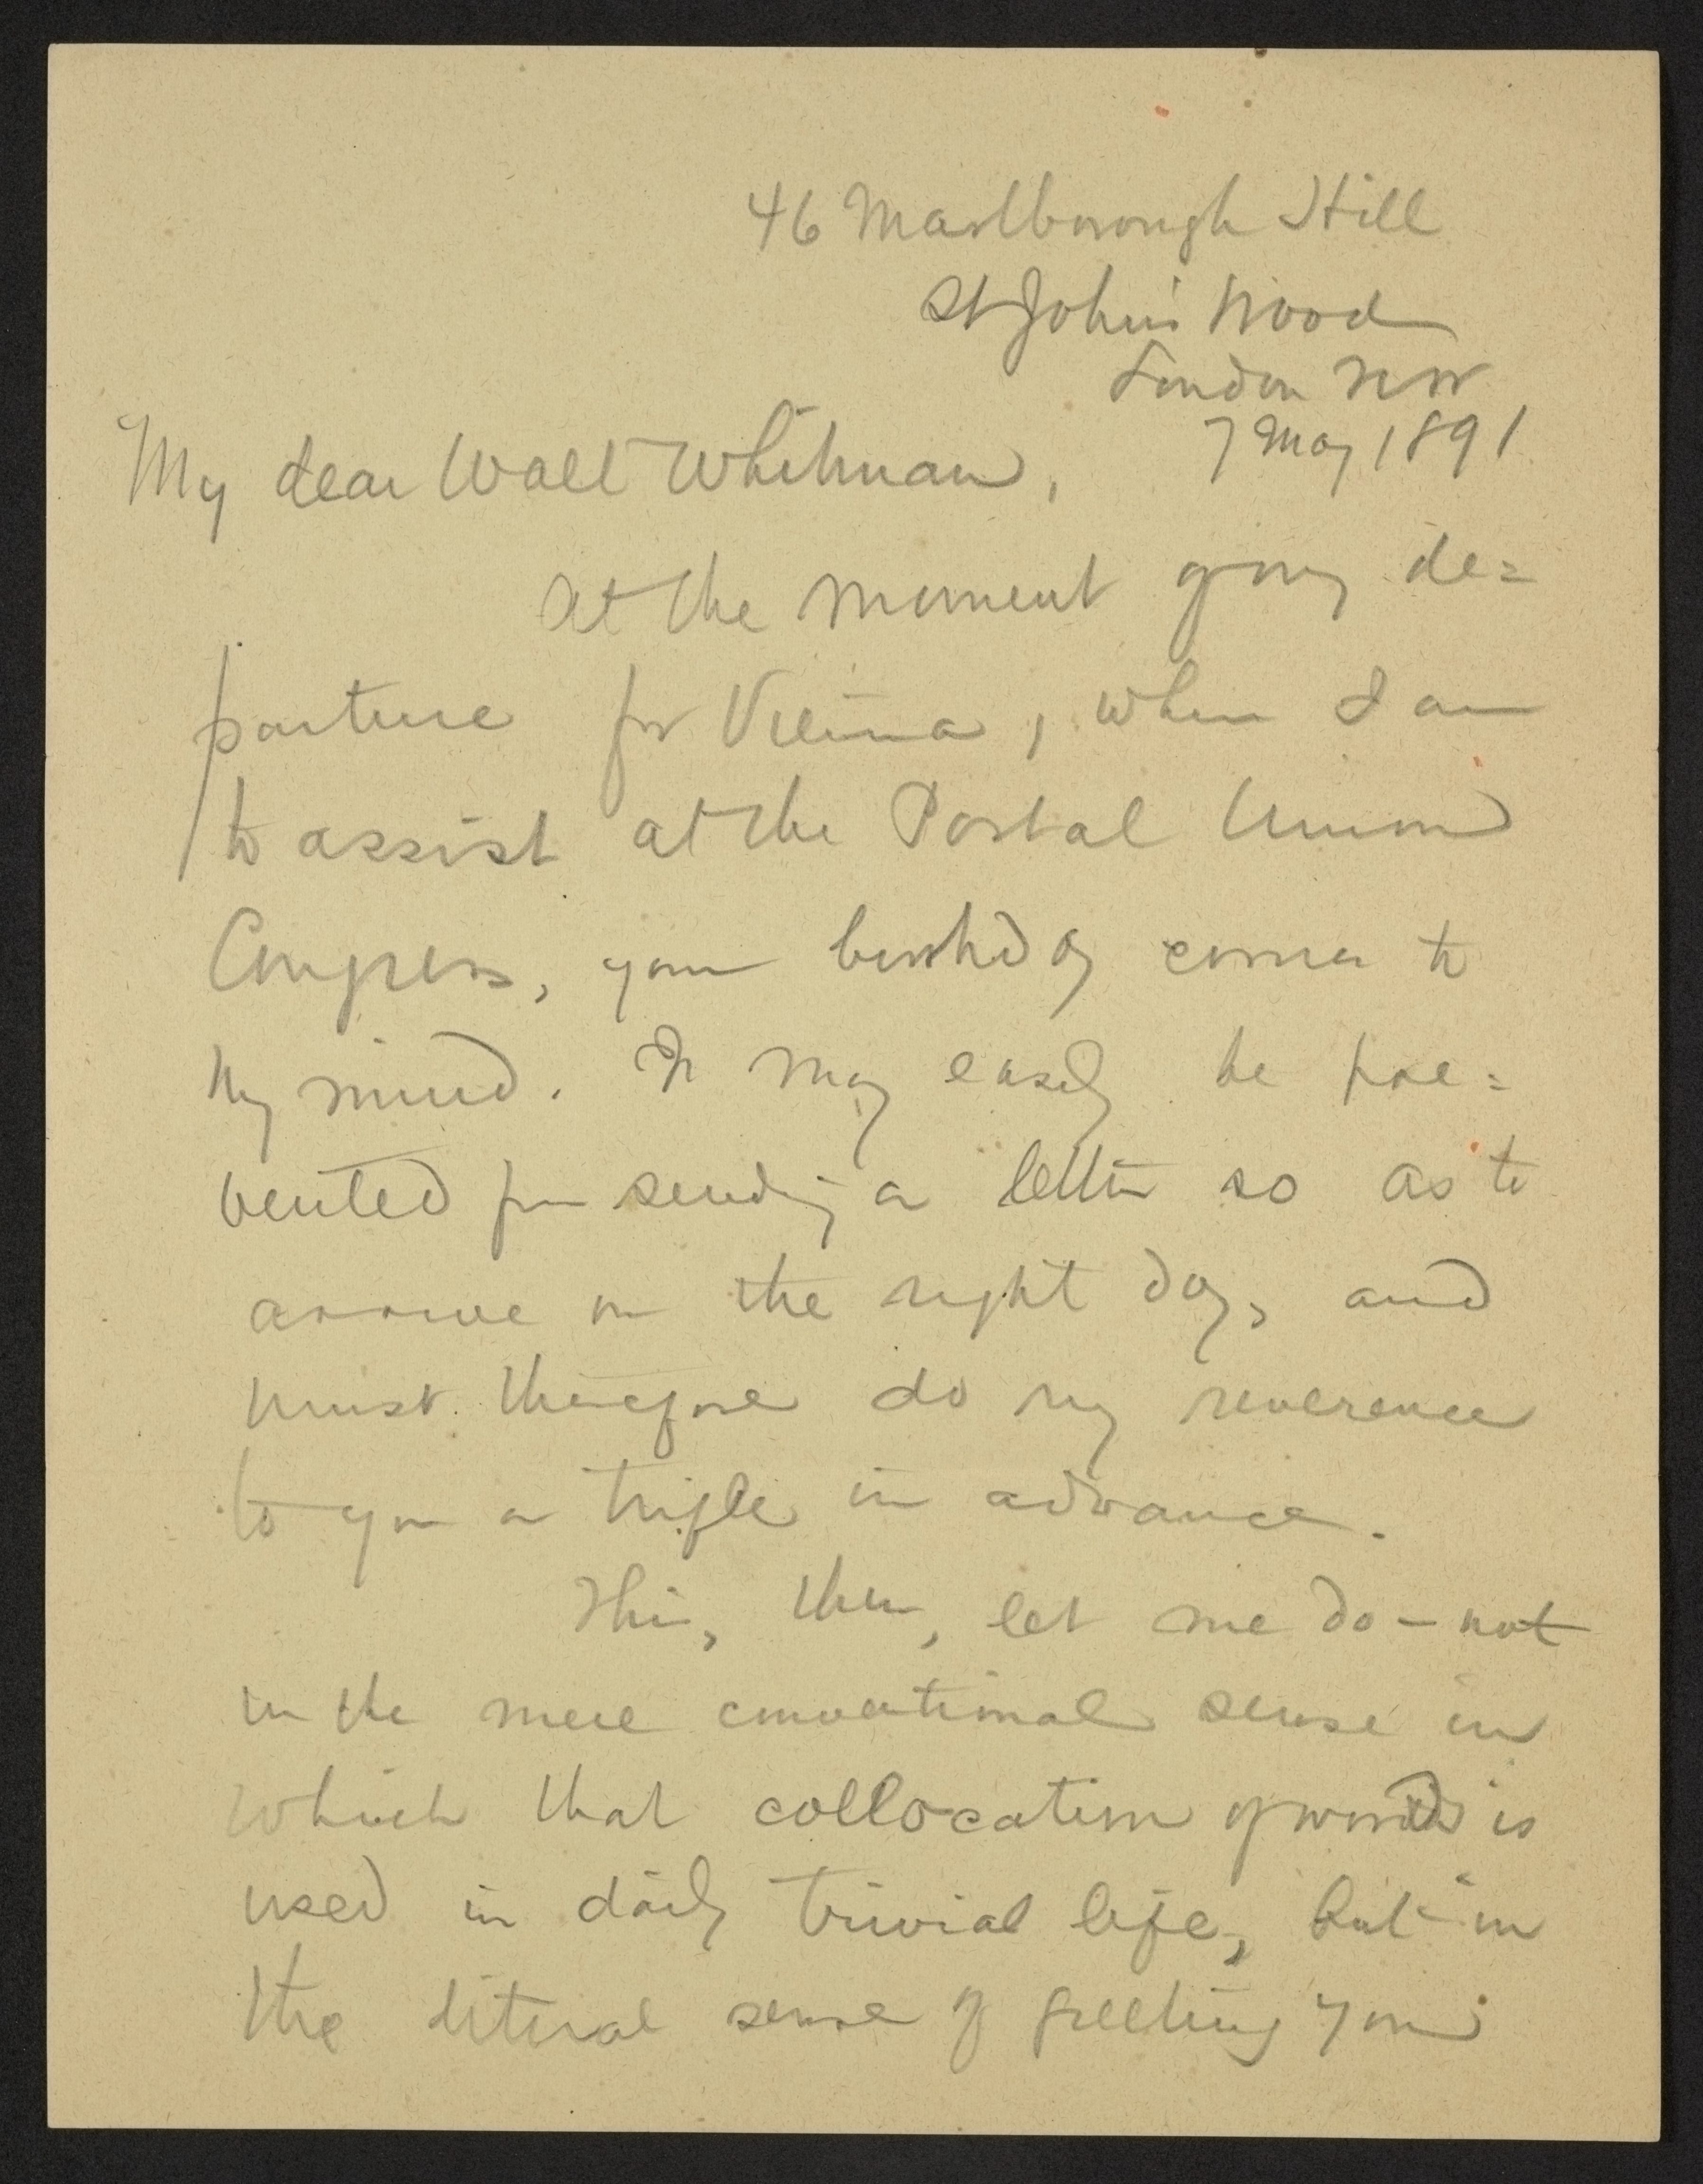 46 Marlborough Hill
St John's Wood
London NW
7 May 1891
My dear Walt Whitman,
At the moment of my de=
parture for Vienna, where I am
to assist at the Postal Union
Congress, your birthday comes to
my mind. I may easily be pre=
vented from sending a letter so as to
arrive on the right day, and
must therefore do my reverence
to you a trifle in advance.
This, then, let me do – not
in the mere conventional sense in
which that collocation of words is
used in daily trivial life, but in
the literal sense of greeting you